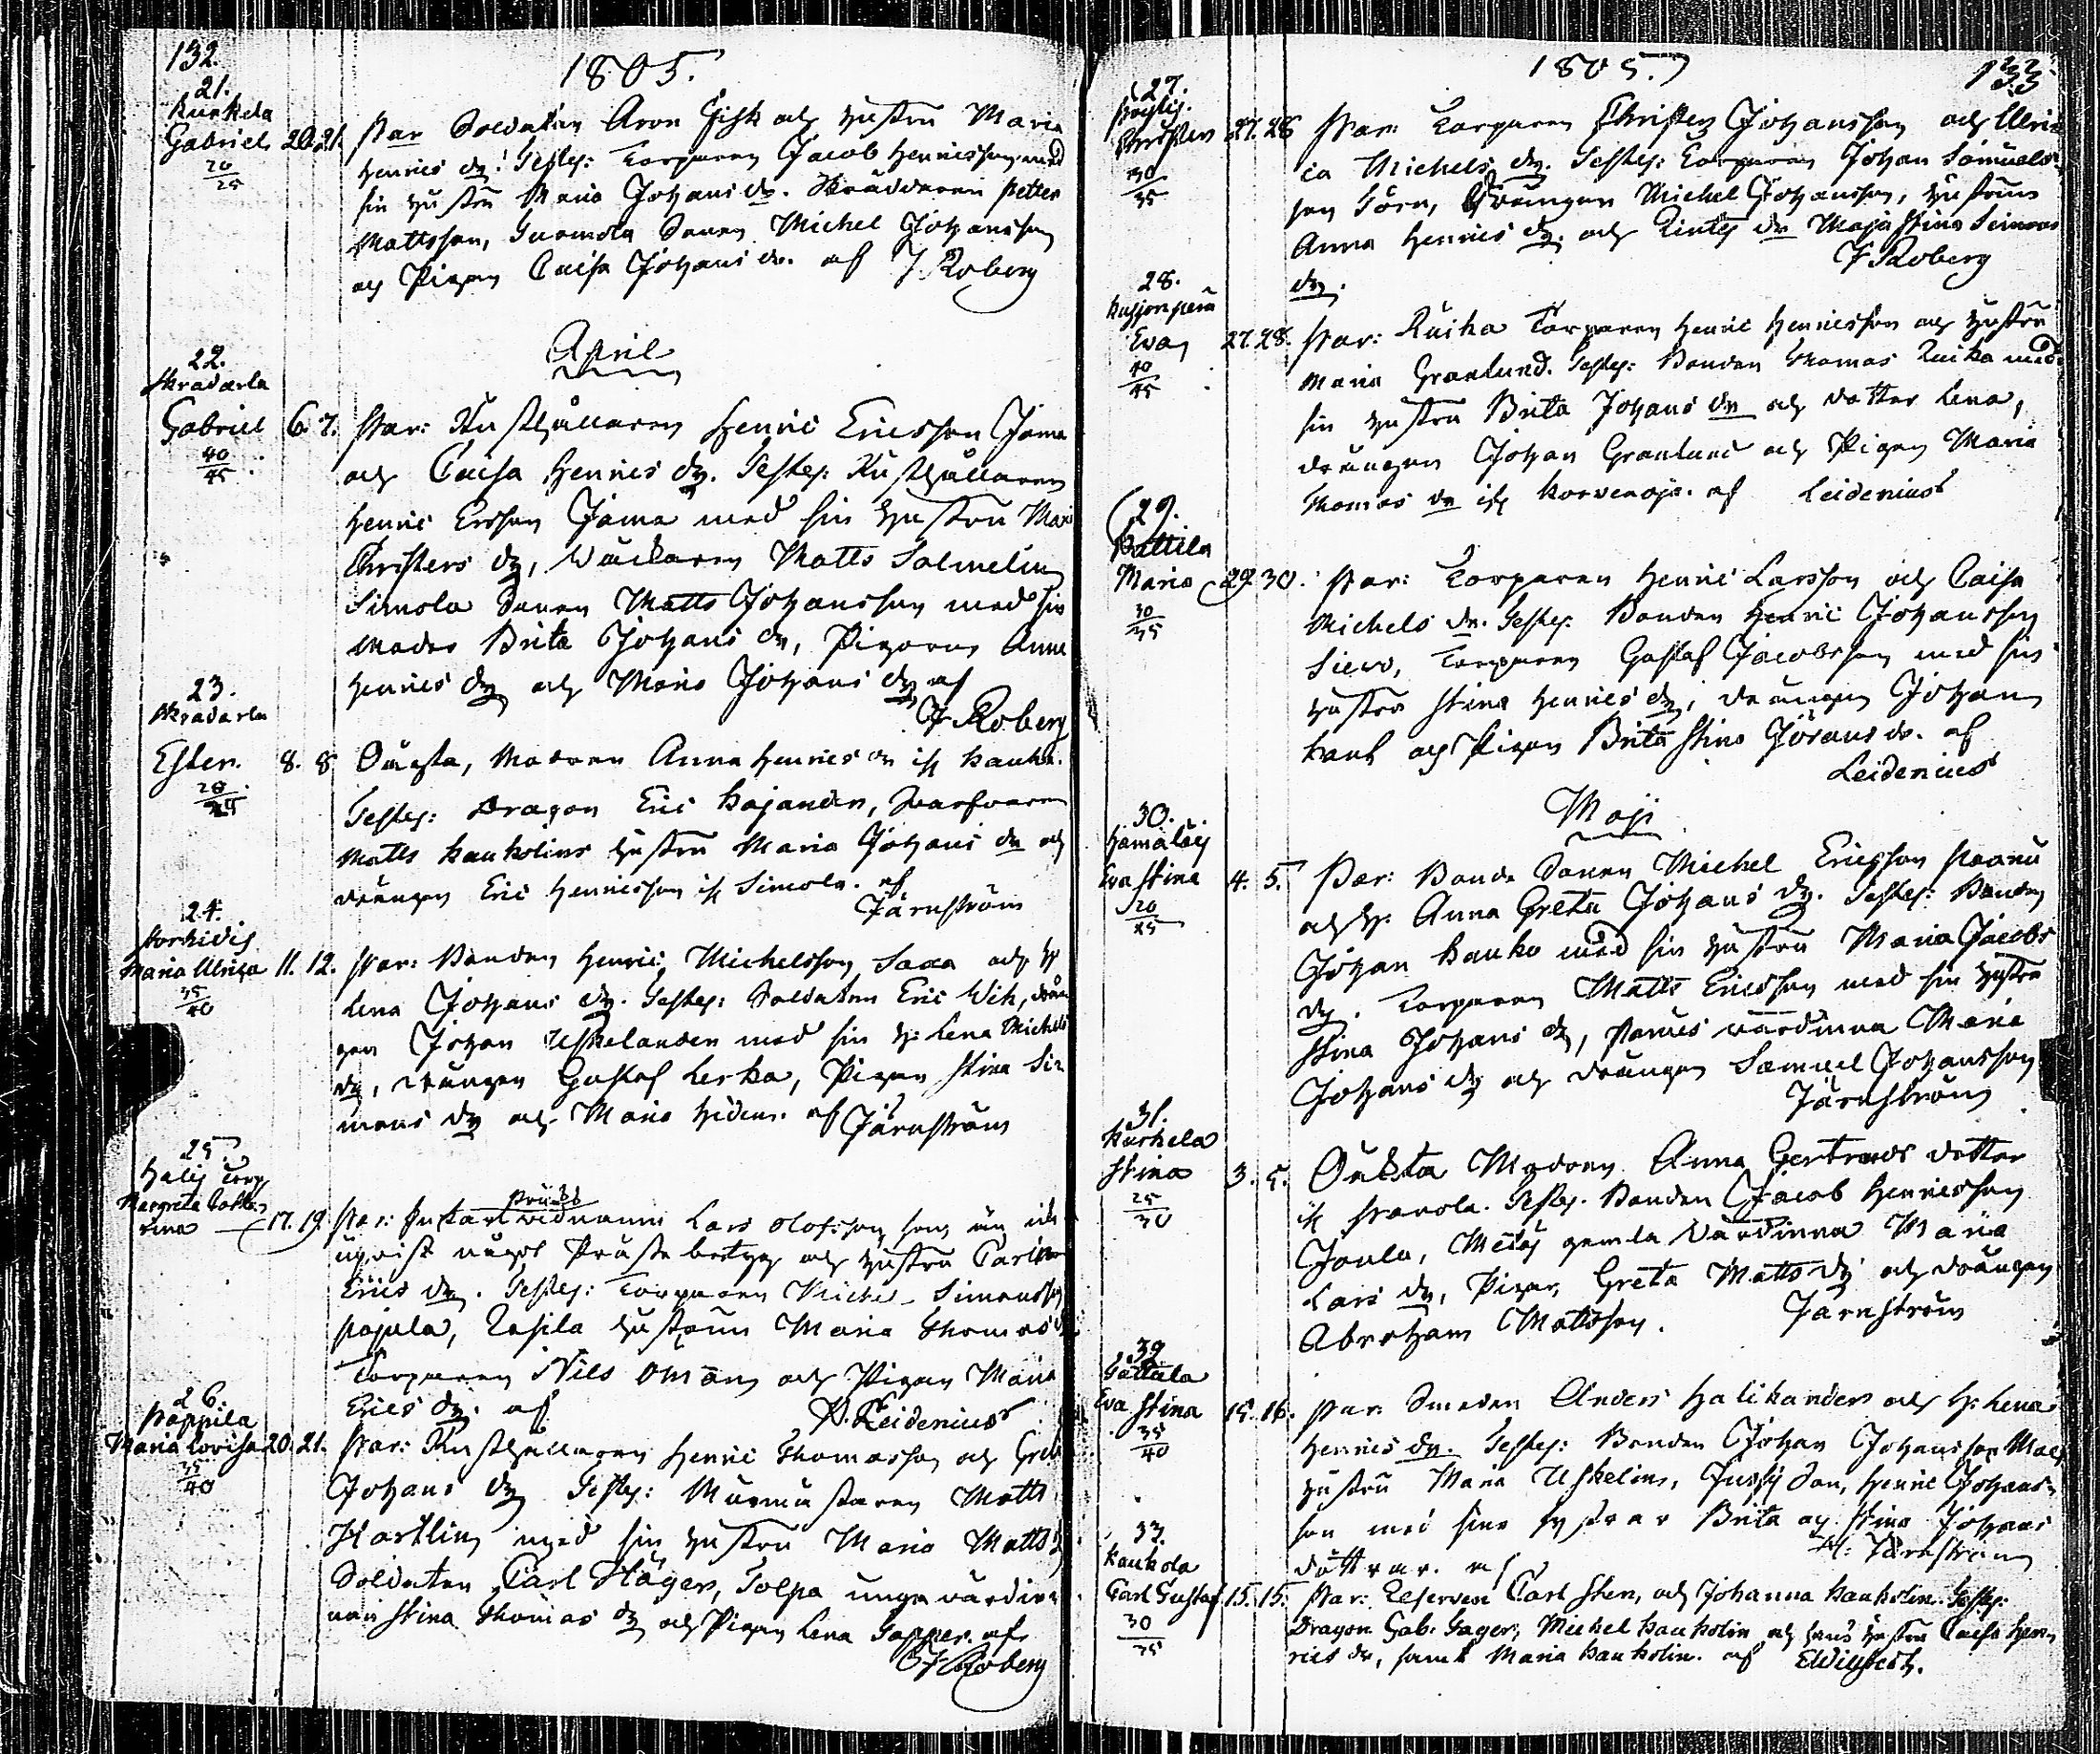 132.
1805.
21.
Kurkela
Gabriel 20. 21.
20/25
Par Soldaten Aron Fisk och hustru Maria
Henrics dr. Testes: Torparen Jacob Henricsson med
sin hustru Maria Johans dr. Skräddaren Petter
Mattsson, Sonen Michel Johansson
och Pigan Caisa Johans dr. af J. Roberg
April
22.
Skradarla
Gabriel 6. 7.
40/45
Par: Rusthållaren Henric Ericsson Jama
och Caisa Henrics dr. Testes: Rusthållaren
Henric Ersson Jama med sin hustru Mari
Christers dr, Matts Salmelin
Simola Sonen Matts Johansson med sin
Moder Brita Johans dr, Pigorna Anna
Henrics dr och Maria Johans dr af
J. Roberg
23.
Skradarla
Ester. 8. 8
20/25
Oäkta, Modren Anna Henrics dr ifr Kauko.
Testes: Dragon Eric Kajander,
Matts Kaukolins hustru Maria Johans dr och
drängen Eric Henricsson ifr Simola. af
Järnström
24.
Torkidis
Maria Ulrica 11. 12.
35/40
Par: Bonden Henric Michelsson Saxa och h.
Lena Johans dr. Testes: Soldaten Eric Wik, drän
gen Johan Uskelander med sin h: Lena Michels
dr, drängen Gustaf Lerka, Pigan Stina Si
mons dr och Maria Hiden. af Järnström
25.
Halis Torp
Margreta Catha
rina 17. 19.
Par: Lars Olofsson som än icke
upvist något Präste betyg och hustru Carin
Erics dr. Testes: Torparen Michel Simonsson
Pajula, Rasila hustrun Maria Thomas d
Torparen Nils Oman och Pigan Maria
Erics dr. af P. Leidenius
26.
Pappila
Maria Lovisa 20. 21.
35/40
Par: Rusthållaren Henric Thomasson och Greta
Johans dr Testes: Murmästaren Matts
Hartlin med sin hustru Maria Matts d
Soldaten Carl Häger, Tolpa unga värdin
nan Stina Thomas dr och Pigan Lena af
J Roberg
1805.
133
27.
Christer 27. 28
30/35
Par: Torparen Christer Johansson och Ulri
ca Michels dr. Testes: Torparen Johan Samuels
son Sörn, Drängen Michel Johansson, hustrun
Anna Henrics dr. och dr Maja Stina Simons
dr.
J Roberg
28.
Eva 27. 28.
40/45
Par: Ruika Torparen Henric Henricsson och hustru
Maria Granlund. Testes: Bonden Thomas Ruika med
sin hustru Brita Johans dr och dotter Lena,
drängen Johan Granlund och Pigan Maria
Thomas dr ifr Korvenoja. af Leidenius
29.
Pattila
Maria 29. 30.
30/35
Par: Torparen Henric Larsson och Caisa
Michels dr. Testes. Bonden Henric Johansson
Siewo, Torparen Gustaf Jacobsson med sin
hustru Stina Henrics dr, drängen Johan
och Pigan Brita Stina Jörans dr. af
Leidenius
Maji
30.
Hamaläis
Eva Stina 4. 5.
20/25
Par: Bonde Sonen Michel Ericsson Paavu
och h. Anna Greta Johans dr. Testes: Bonden
Johan Kauko med sin hustru Maria Jacobs
dr. Torparen Matts Ericsson med sin hustru
Stina Johans dr, värdinna Maria
Johans dr och drängen Samuel Johansson
Järnström
31.
Kurkela
Stina 3. 5.
25/30
Oäkta Modren Anna Gertruds dotter
ifr Pavola. Testes. Bonden Jacob Henricsson
Joula, gamla Värdinna Maria
Lars dr, Pigan Greta Matts dr och drängen
Abraham Mattsson. Järnström
32
Gattula
Eva Stina 15. 16.
35/40
Par. Smeden Anders Halikander och H: Lena
Henrics dr. Testes: Bonden Johan Johansson
hustru Maria Uskelin, Jussy Son, Henric Johans
son med sina systrar Brita och Stina Johans
döttrar. af Järnström
33.
Kaukola
Carl Gustaf 15. 15.
30/35
Par: Reserven Carl Sten, och Johanna Kaukolin. Testes:
Dragon Gab: Sager, Michel Kaukolin och hans hustru Caisa Hen
rics dr, samt Maria Kaukolin. af